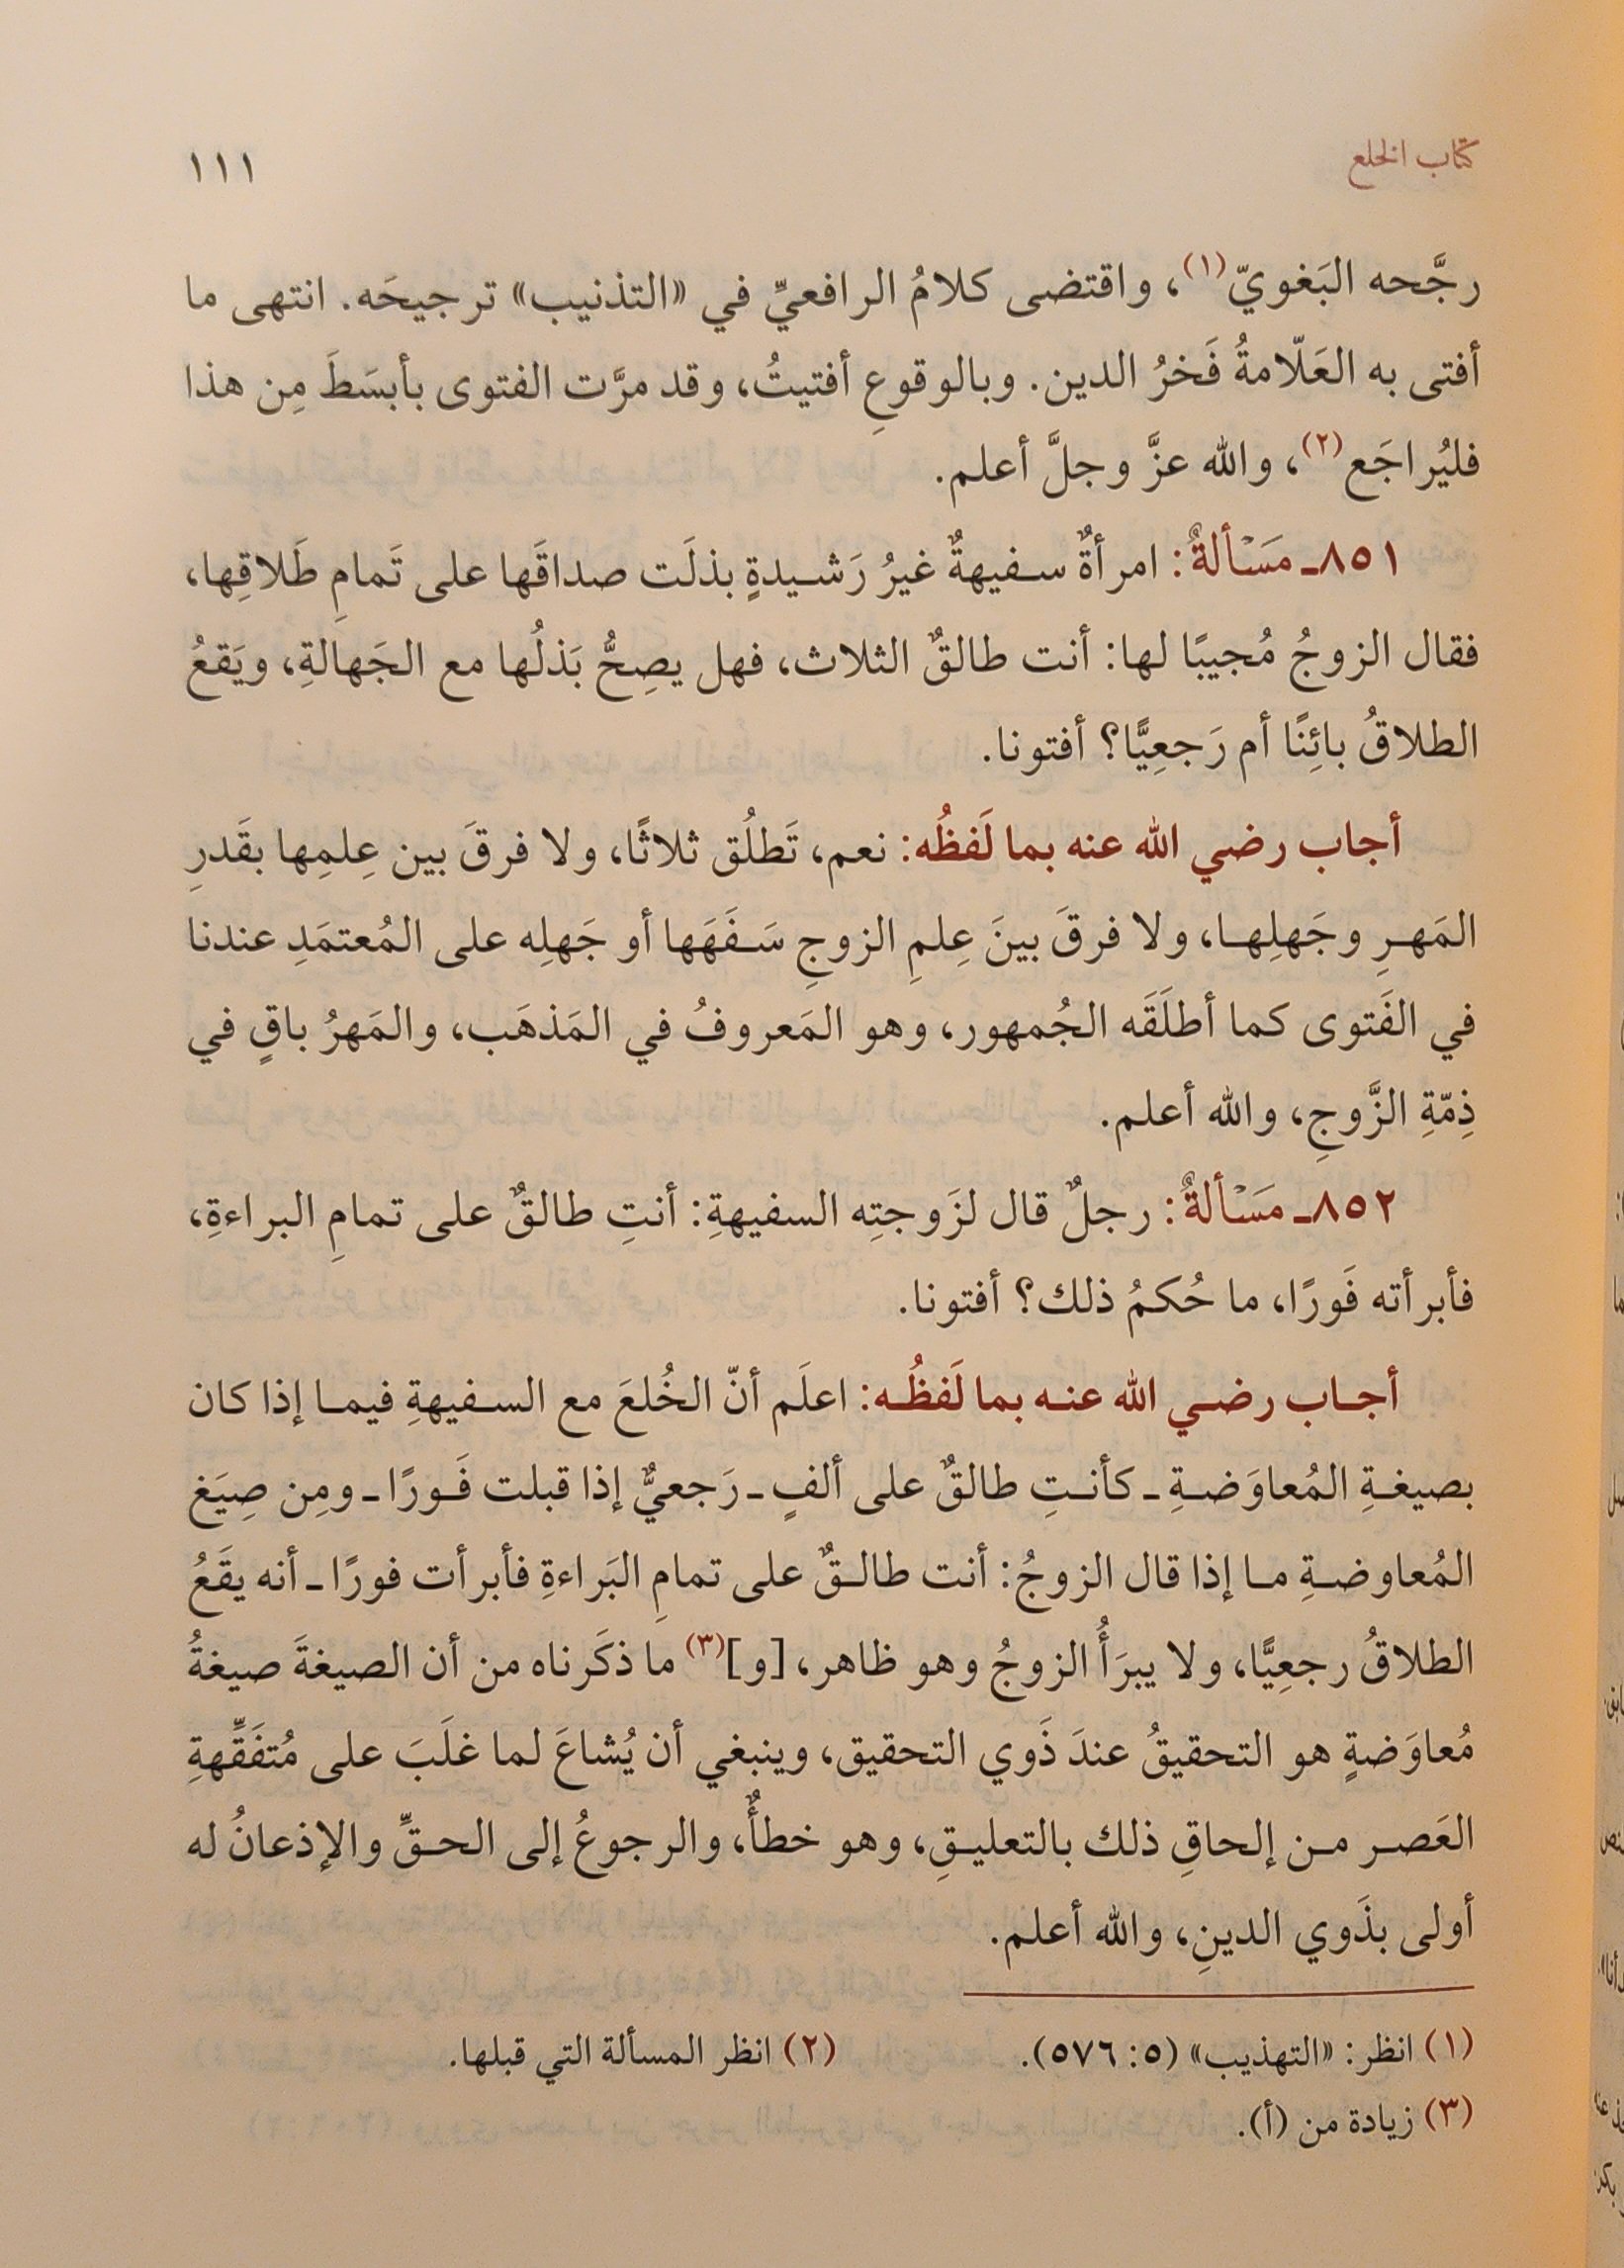 كتاب الخلع
١١١
رجَّحه البَغويّ(١)، واقتضى كلامُ الرافعيِّ في «التذنيب» ترجيحَه. انتهى ما
أفتى به العَلّامةُ فَخرُ الدين. وبالوقوعِ أفتيتُ، وقد مرَّت الفتوى بأبسَطَ مِن هذا
فليُراجَع(٢)، والله عزَّ وجلَّ أعلم.
٨٥١ـ مَسْألةٌ: امرأةٌ سفيهةٌ غيرُ رَشيدةٍ بذلَت صداقَها على تَمامِ طَلاقِها،
فقال الزوجُ مُجيبًا لها: أنت طالقٌ الثلاث، فهل يصِحُّ بَذلُها مع الجَهالةِ، ويَقعُ
الطلاقُ بائِنًا أم رَجعِيًّا؟ أفتونا.
أجاب رضي الله عنه بما لَفظُه: نعم، تَطلُق ثلاثًا، ولا فرقَ بين عِلمِها بقَدرِ
المَهرِ وجَهلِها، ولا فرقَ بينَ عِلمِ الزوجِ سَفَهَها أو جَهلِه على المُعتمَدِ عندنا
في الفَتوى كما أطلَقَه الجُمهور، وهو المَعروفُ في المَذهَب، والمَهرُ باقٍ في
ذِمّةِ الزَّوجِ، والله أعلم.
٨٥٢ـ مَسْألةٌ: رجلٌ قال لزَوجتِه السفيهةِ: أنتِ طالقٌ على تمامِ البراءةِ،
فأبرأته فَورًا، ما حُكمُ ذلك؟ أفتونا.
أجاب رضي الله عنه بما لَفظُه: اعلَم أنّ الخُلعَ مع السفيهةِ فيما إذا كان
بصيغةِ المُعاوَضةِ ـ كأنتِ طالقٌ على ألفٍ ـ رَجعيٌّ إذا قبلت فَورًا ـ ومِن صِيَغ
المُعاوضةِ ما إذا قال الزوجُ: أنت طالقٌ على تمامِ البَراءةِ فأبرأت فورًا ـ أنه يقَعُ
الطلاقُ رجعِيًّا، ولا يبرَأُ الزوجُ وهو ظاهر، [و](٣) ما ذكَرناه من أن الصيغةَ صيغةُ
مُعاوَضةٍ هو التحقيقُ عندَ ذَوي التحقيق، وينبغي أن يُشاعَ لما غلَبَ على مُتفَقِّهةِ
العَصر من إلحاقِ ذلك بالتعليقِ، وهو خطأٌ، والرجوعُ إلى الحقِّ والإذعانُ له
أولى بذَوي الدينِ، والله أعلم.
(١) انظر: «التهذيب» (٥: ٥٧٦).
(٢) انظر المسألة التي قبلها.
(٣) زيادة من (أ).